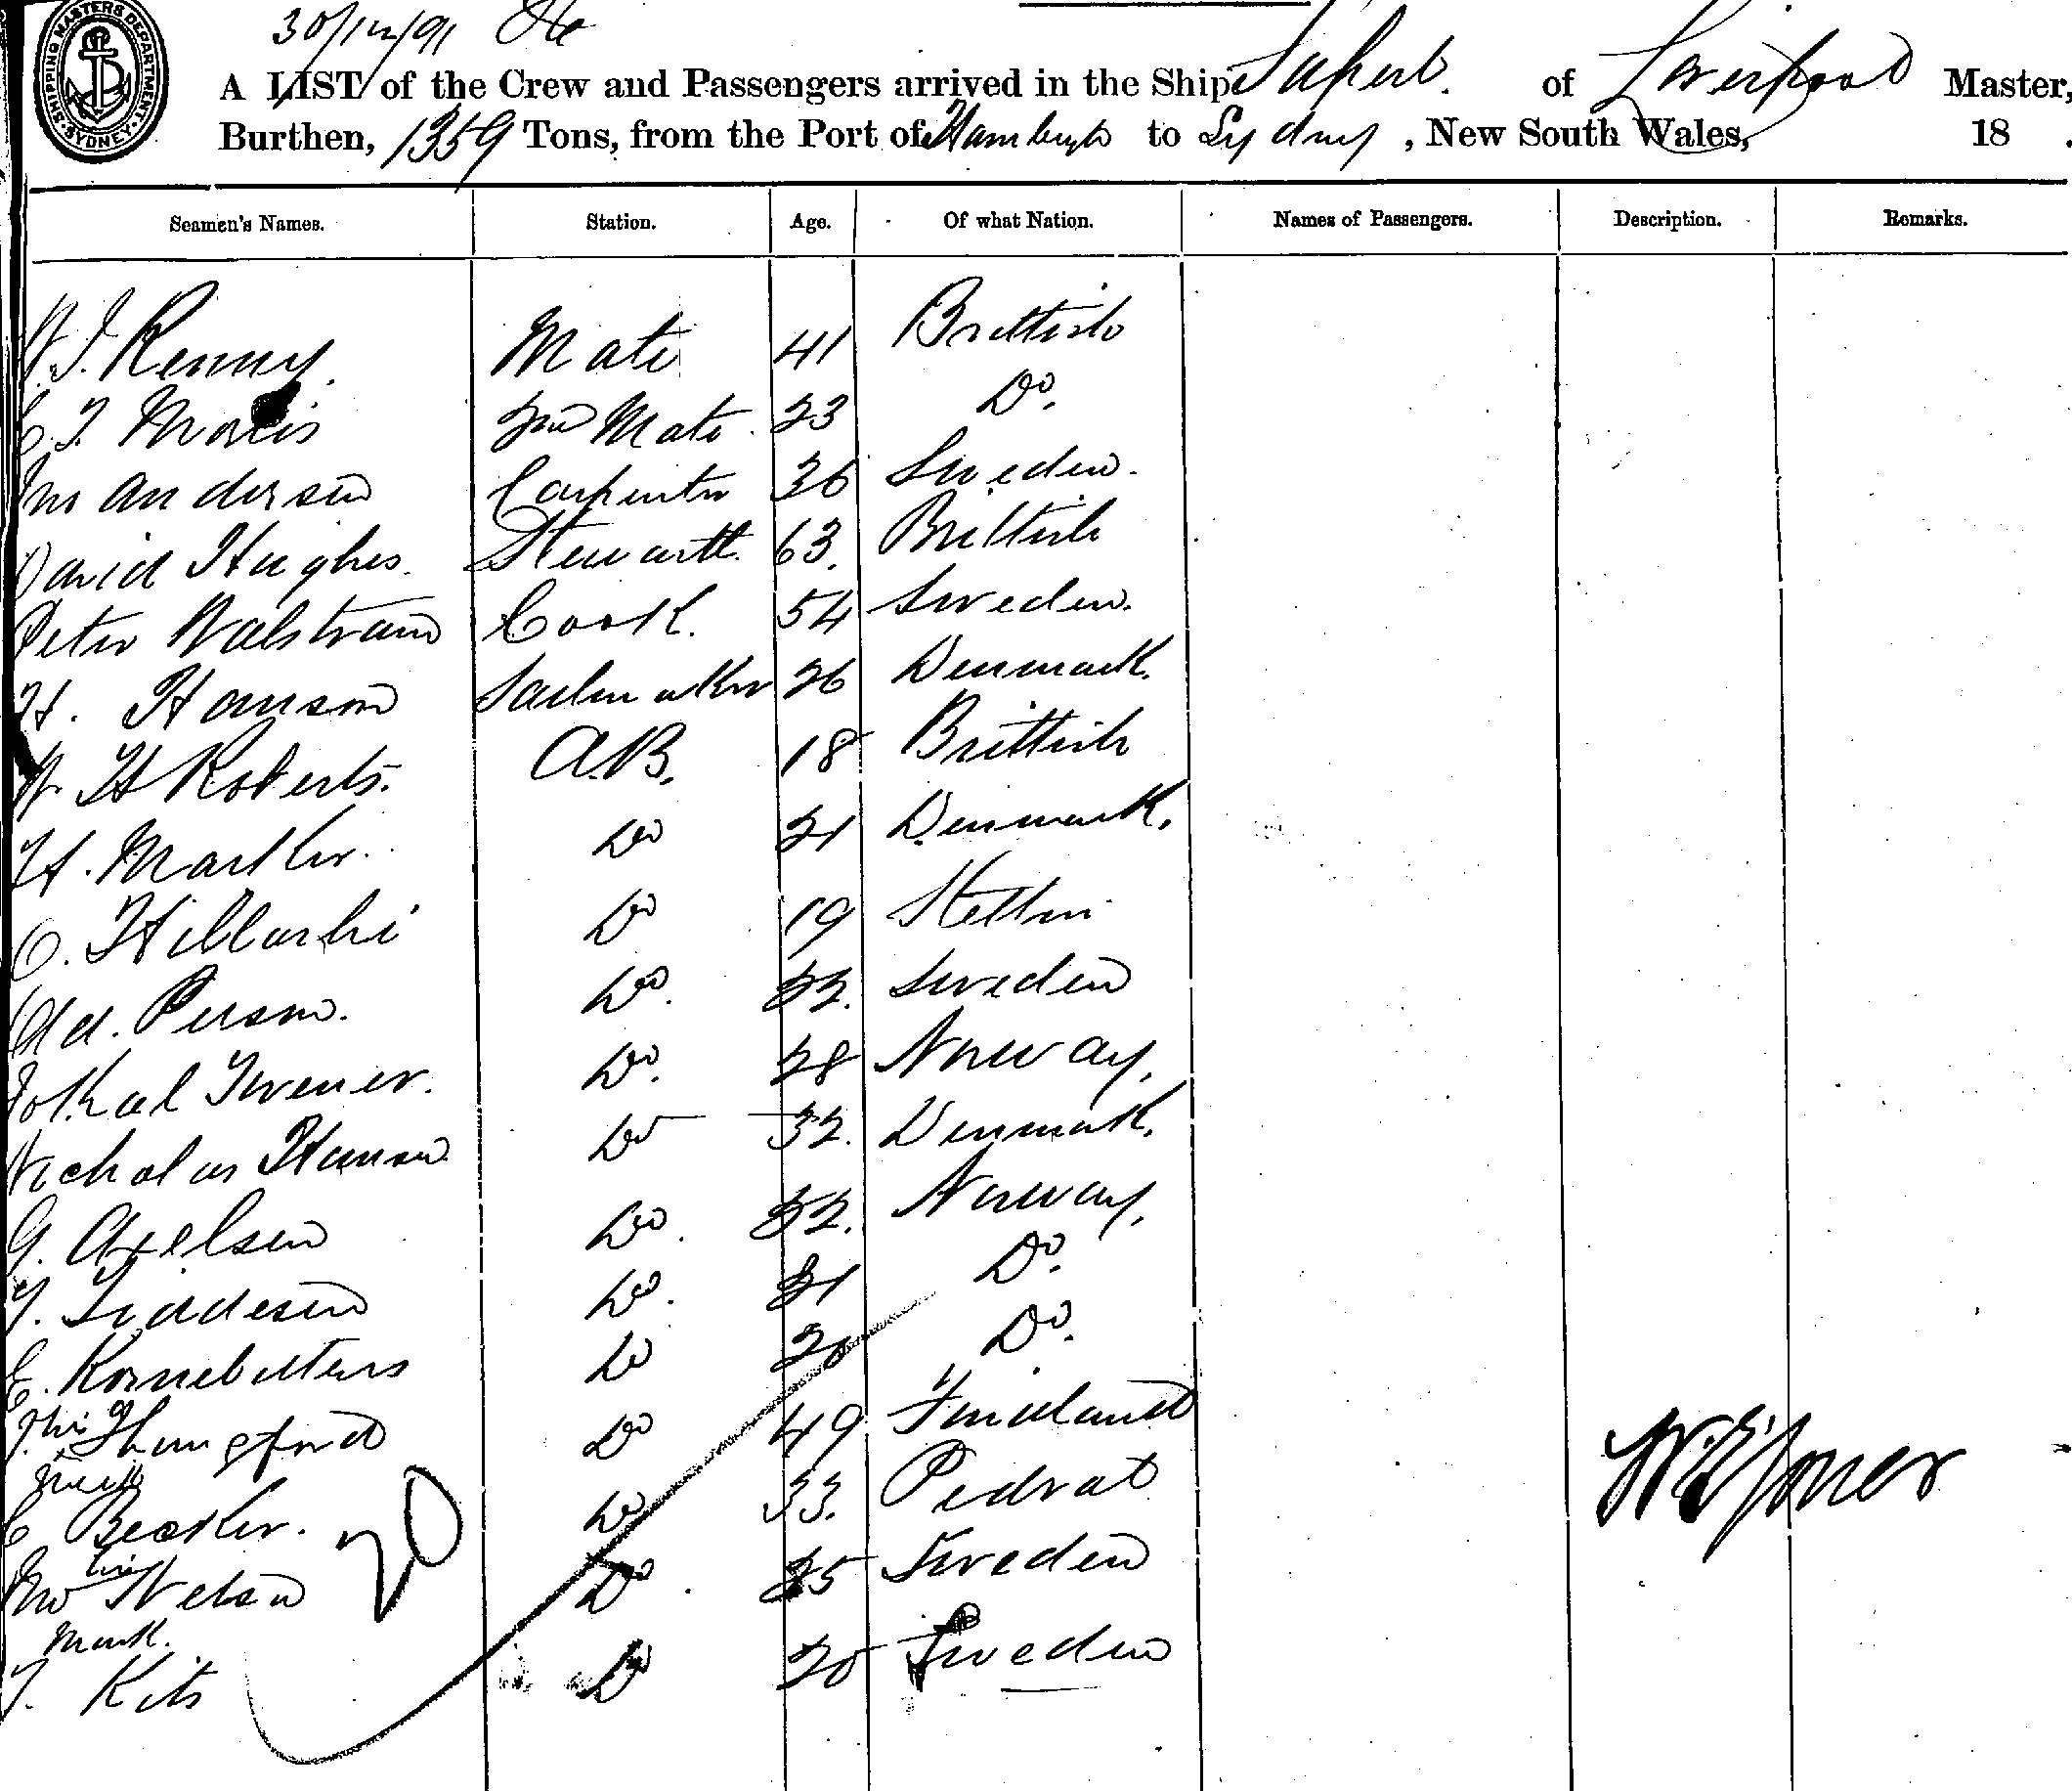 30/12/91
SHIPPING MASTERS DEPARTMENT · SYDNEY ·
A LIST of the Crew and Passengers arrived in the Ship of Liverpool Master,
Burthen, 1359 Tons, from the Port of Hamburgh to Sydney, New South Wales, 18 .
Seamen's Names. Station. Age. Of what Nation. Names of Passengers. Description. Remarks.
Mate 41 Brittish
Morris 2nd Mate 23 Do.
Jno Andersen Carpenter 36 Sweden.
David Hughes. Stewartt. 63. Brittish
Peter Walstrand Cook. 54 Sweden.
H. Hanson Sailmaker 26 Denmark.
W H Roberts. A.B. 18 Brittish
H. Do 21 Denmark.
O. Do 19 Stettin
Ad. Person. Do. 22. Sweden
Do. 28 Norway.
Nicholas Hanson Do 32. Denmark.
G. Axelsen Do. 22. Norway.
Do. 21 Do.
E. Do 20 Do.
Do 49 Finland
C Becker. Do 33.
20
Jno Nelson Do. 25 Sweden
Mark.
J. Kits Do 20 Sweden
W. E. Jones